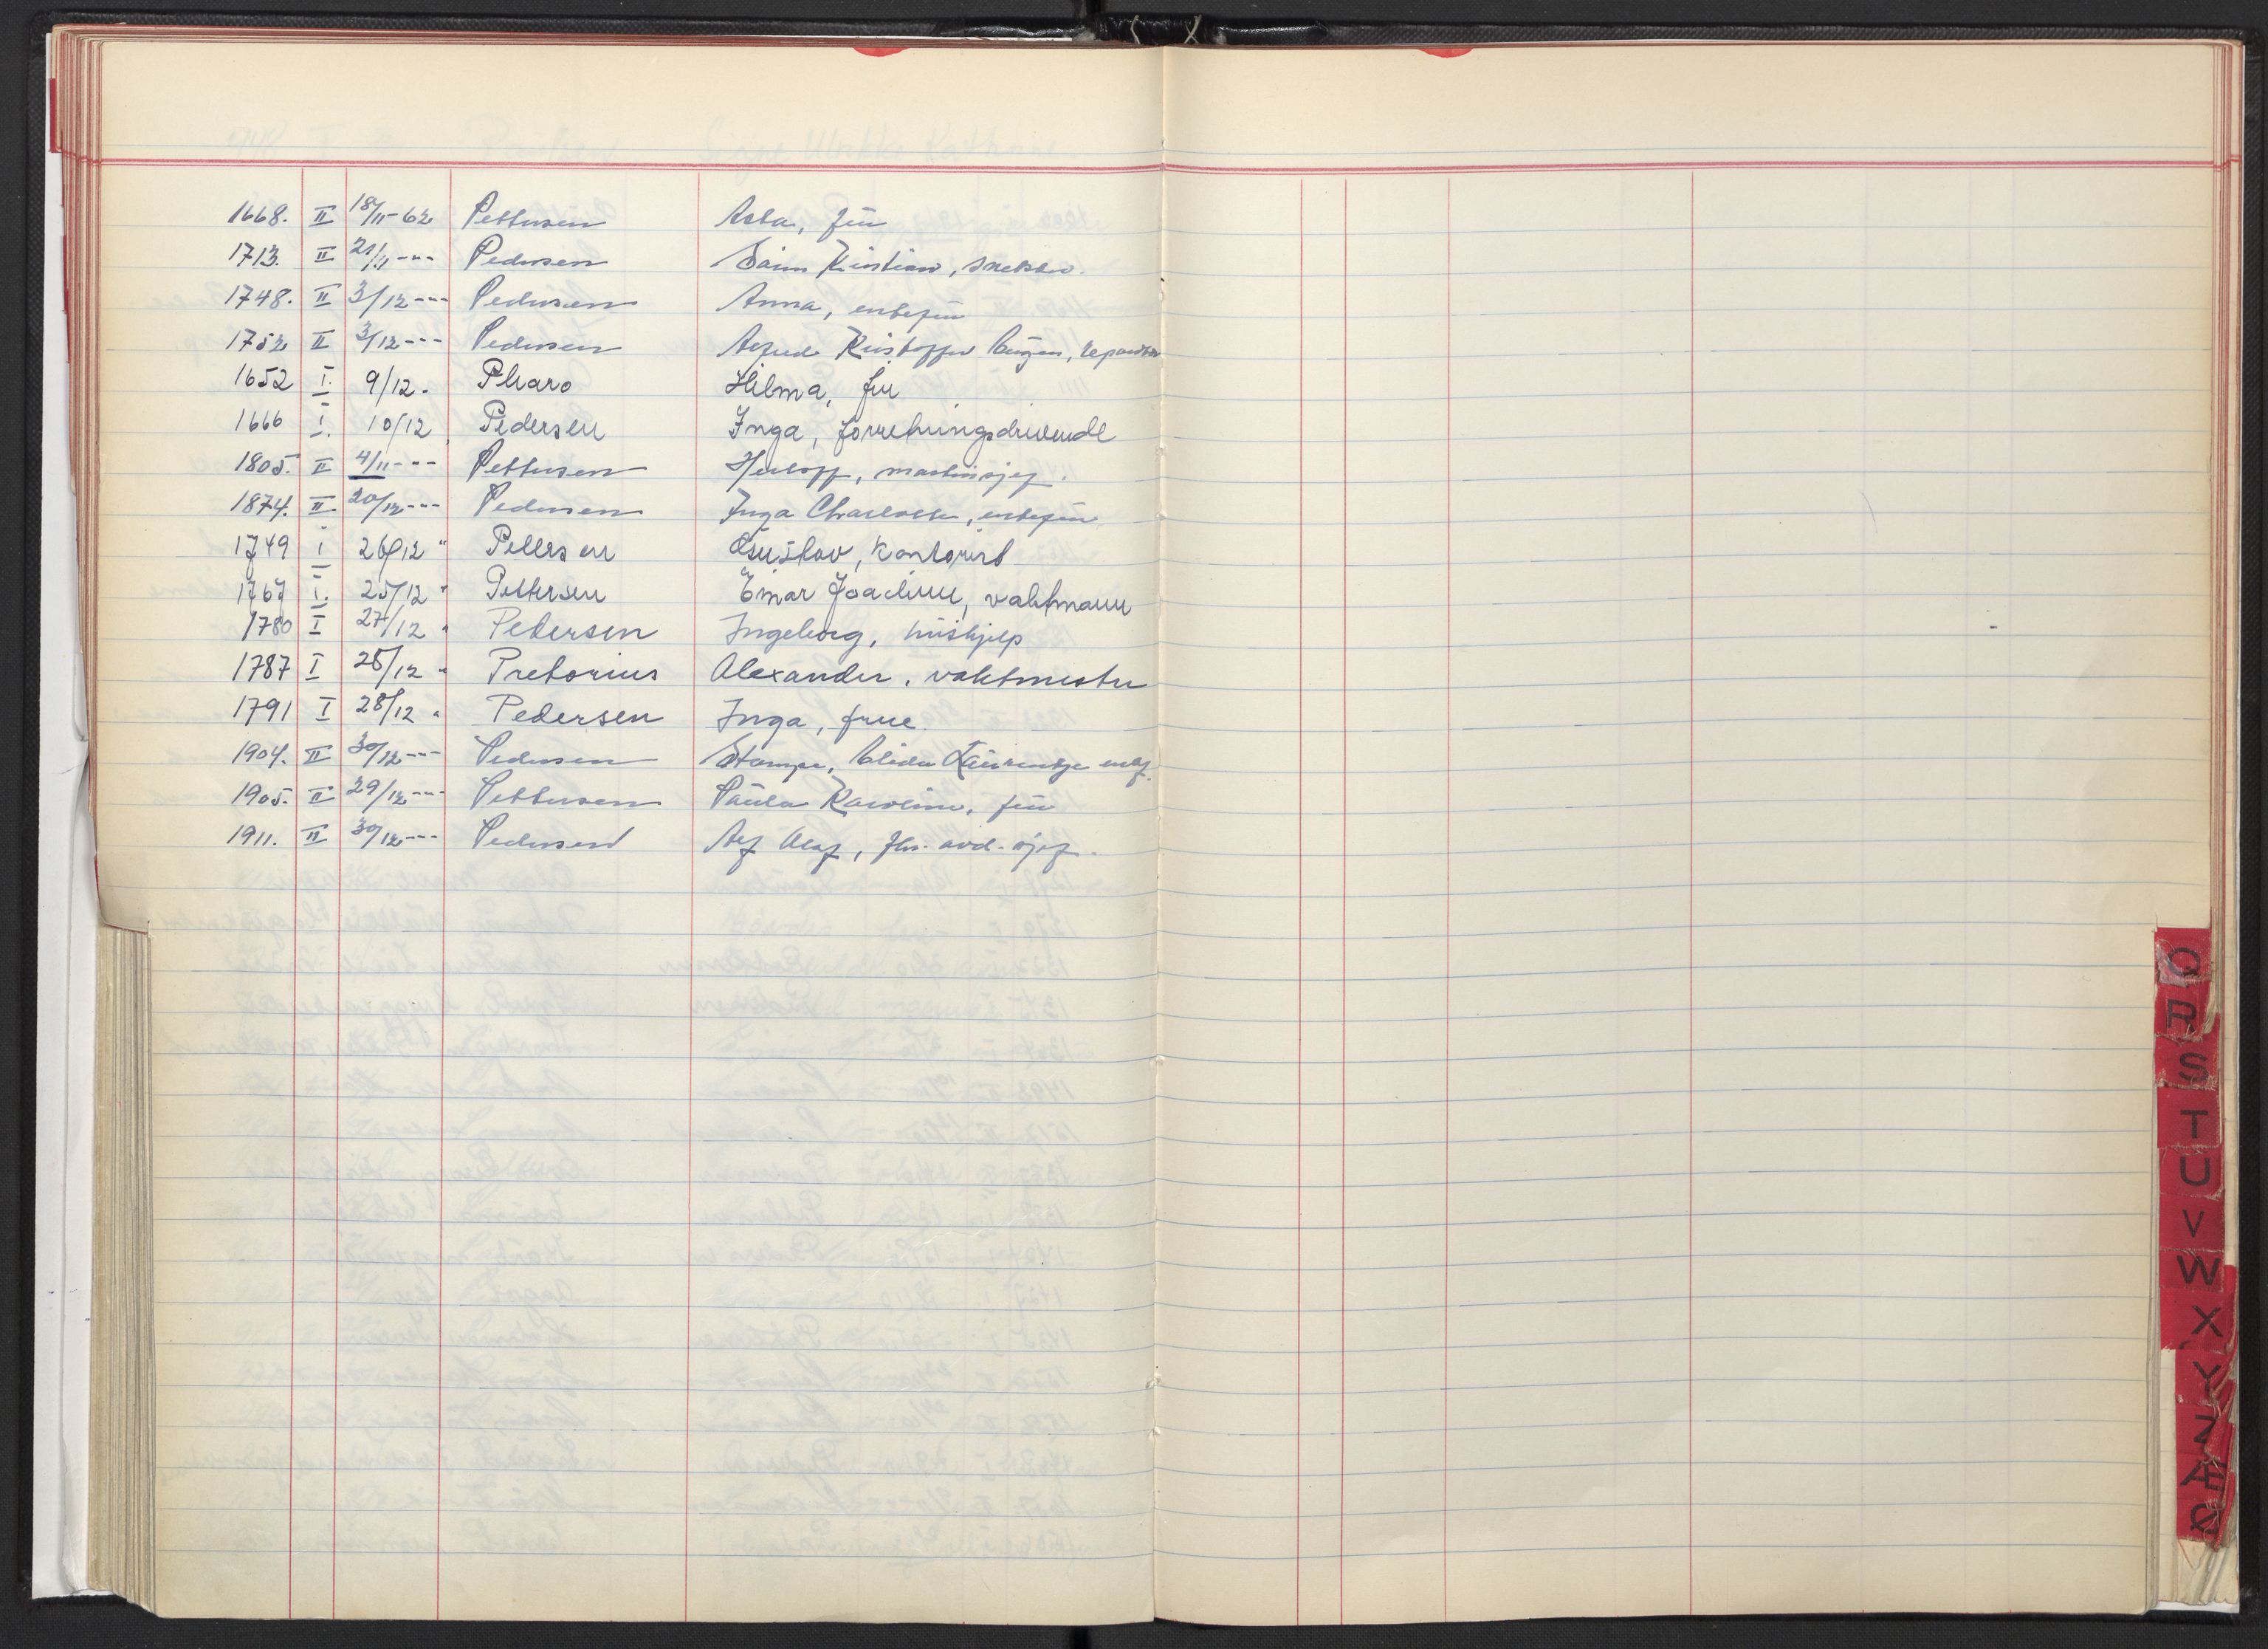 1668. II 18/11-62 Pettersen Asta, fru
1713. II 21/11 -"- Pedersen Kristian, snekker.
1748. II 3/12 -"- Pedersen Anna, enkefru
1752 II 3/12 -"- Pedersen Alfred Kristoffer
1652 I. 9/12. Pharo Hilma, fru
1666 I. 10/12 Pedersen Inga, forretningsdrivende
1805. II 4/11 -"- Pettersen Herlopp, maskinsjef.
1874. II 20/12 -"- Pedersen Inga Charlotte, enkefru
1749 I 26/12 " Pettersen Gustav, kontorist
1767 I. 25/12 " Pettersen Einar Joachim, vaktmann
1780 I 27/12 " Petersen Ingeborg, hushjelp
1787 I 28/12 " Pretorius Alexander, vaktmester
1791 I 28/12 " Pedersen Inga, frue.
1904. II 30/12 -"- Pedersen Stampe,
1905. II 29/12 -"- Pettersen Paula Karoline, fru
1911. II 30/12 -"- Pedersen Alf Olaf, fhv. avd. sjef.
Q
R
S
T
U
V
W
X
Y
Z
Æ
Ø